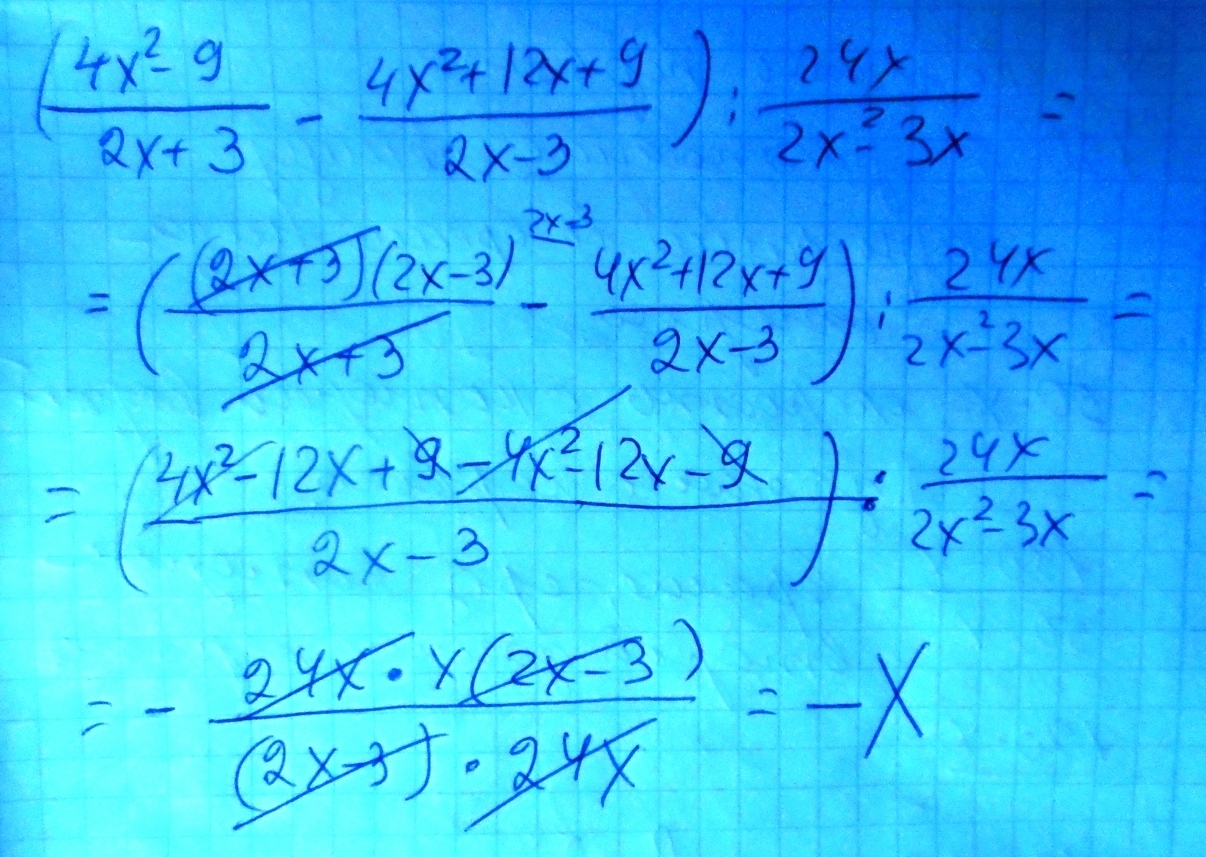 (4x²-9)/(2x+3) - (4x²+12x+9)/(2x-3)) : 24x/(2x²-3x) =
= ((2x+3)(2x-3)/(2x+3) ^{2x-3} - (4x²+12x+9)/(2x-3)) : 24x/(2x²-3x) =
= ((4x²-12x+9-4x²-12x-9)/(2x-3)) : 24x/(2x²-3x) =
= - (24x · x(2x-3))/((2x-3) · 24x) = -x